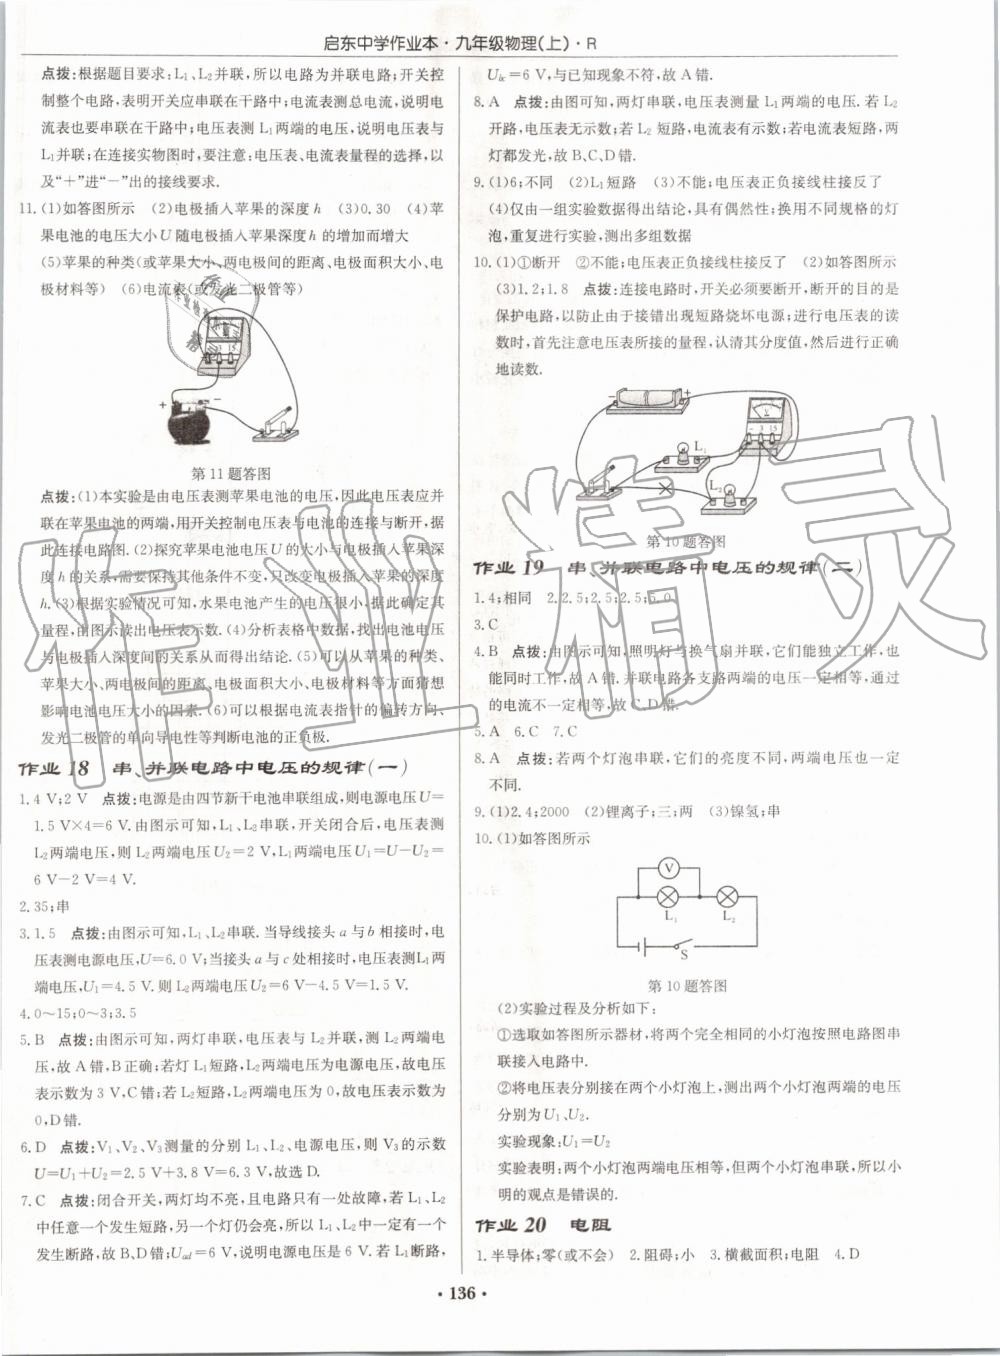 启东中学作业本·九年级物理(上)·R
点拨:根据题目要求:L₁、L₂并联,所以电路为并联电路;开关控
制整个电路,表明开关应串联在干路中;电流表测总电流,说明电
流表也要串联在干路中;电压表测 L₁两端的电压,说明电压表与
L₁并联;在连接实物图时,要注意:电压表、电流表量程的选择,以
及“+”进“-”出的接线要求.
11.(1)如答图所示 (2)电极插入苹果的深度 h (3)0.30 (4)苹
果电池的电压大小 U 随电极插入苹果深度 h 的增加而增大
(5)苹果的种类(或苹果大小、两电极间的距离、电极面积大小、电
极材料等) (6)电流表(或发光二极管等)
- 3 15
+
-
第11题答图
点拨:(1)本实验是由电压表测苹果电池的电压,因此电压表应并
联在苹果电池的两端,用开关控制电压表与电池的连接与断开,据
此连接电路图.(2)探究苹果电池电压 U 的大小与电极插入苹果
深度 h 的关系,需要保持其他条件不变,只改变电极插入苹果的深度
h.(3)根据实验情况可知,水果电池产生的电压很小,据此确定其
量程,由图示读出电压表示数.(4)分析表格中数据,找出电池电压
与电极插入深度间的关系从而得出结论.(5)可以从苹果的种类、
苹果大小、两电极间的距离、电极面积大小、电极材料等方面猜想
影响电池电压大小的因素.(6)可以根据电流表指针的偏转方向、
发光二极管的单向导电性等判断电池的正负极.
作业 18 串、并联电路中电压的规律(一)
1.4 V;2 V 点拨:电源是由四节新干电池串联组成,则电源电压U=
1.5 V×4=6 V.由图示可知,L₁、L₂串联,开关闭合后,电压表测
L₂两端电压,则 L₂两端电压U₂=2 V,L₁两端电压U₁=U-U₂=
6 V-2 V=4 V.
2.35;串
3.1.5 点拨:由图示可知,L₁、L₂串联.当导线接头 a 与 b 相接时,电
压表测电源电压,U=6.0 V;当接头 a 与 c 处相接时,电压表测L₁两
端电压,U₁=4.5 V.则 L₂两端电压 U₂=6 V-4.5 V=1.5 V.
4.0~15;0~3;3.5
5.B 点拨:由图示可知,两灯串联,电压表与 L₂并联,测 L₂两端电
压,故 A错,B正确;若灯 L₁短路,L₂两端电压为电源电压,故电压
表示数为 3 V,C错;若 L₂短路,L₂两端电压为 0,故电压表示数为
0,D错.
6.D 点拨:V₁、V₂、V₃测量的分别 L₁、L₂、电源电压,则 V₃的示数
U=U₁+U₂=2.5 V+3.8 V=6.3 V,故选 D.
7.C 点拨:闭合开关,两灯均不亮,且电路只有一处故障,若 L₁、L₂
中任意一个发生短路,另一个灯仍会亮,所以 L₁、L₂中一定有一个
发生断路,故 B、D错;Uad=6 V,说明电源电压是 6 V.若L₁断路,
Ubc=6 V,与已知现象不符,故 A错.
8.A 点拨:由图可知,两灯串联,电压表测量 L₁两端的电压.若 L₂
开路,电压表无示数;若 L₂ 短路,电流表有示数;若电流表短路,两
灯都发光,故B、C、D错.
9.(1)6;不同 (2)L₁短路 (3)不能;电压表正负接线柱接反了
(4)仅由一组实验数据得出结论,具有偶然性;换用不同规格的灯
泡,重复进行实验,测出多组数据
10.(1)①断开 ②不能;电压表正负接线柱接反了 (2)如答图所示
(3)1.2;1.8 点拨:连接电路时,开关必须要断开,断开的目的是
保护电路,以防止由于接错出现短路烧坏电源;进行电压表的读
数时,首先注意电压表所接的量程,认清其分度值,然后进行正确
地读数.
-
+
V
- 3 15
L₁
L₂
第10题答图
作业 19 串、并联电路中电压的规律(二)
1.4;相同 2.2.5;2.5;2.5;5.0
3.C
4.B 点拨:由图示可知,照明灯与换气扇并联,它们能独立工作,也
能同时工作,故 A错.并联电路各支路两端的电压一定相等,通过
的电流不一定相等,故 C、D错.
5.A 6.C 7.C
8.A 点拨:若两个灯泡串联,它们的亮度不同,两端电压一定
不同.
9.(1)2.4;2000 (2)锂离子;三;两 (3)镍氢;串
10.(1)如答图所示
V
L₁
L₂
S
第10题答图
(2)实验过程及分析如下:
①选取如答图所示器材,将两个完全相同的小灯泡按照电路图串
联接入电路中.
②将电压表分别接在两个小灯泡上,测出两个小灯泡两端的电压
分别为 U₁、U₂.
实验现象:U₁=U₂
实验表明:两个小灯泡两端电压相等,但两个小灯泡串联,所以小
明的观点是错误的.
作业 20 电阻
1.半导体;零(或不会) 2.阻碍;小 3.横截面积;电阻 4.D
· 136 ·
作业精灵